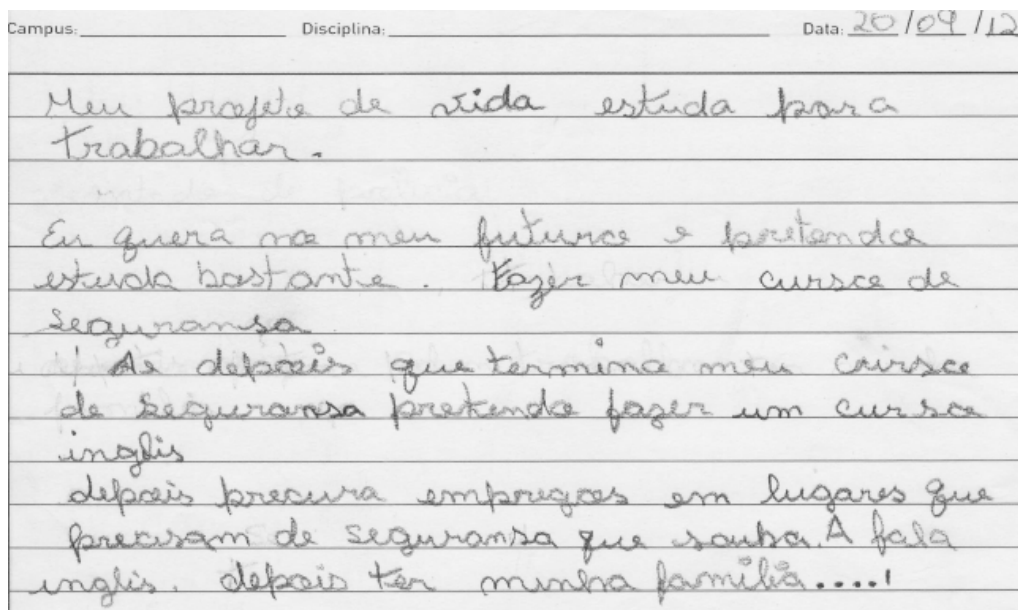 Campus: Disciplina: Data: 20/09/12
Meu projeto de vida estuda para
trabalhar.
Eu quero no meu futuro e pretendo
estuda bastante. Fazer meu curso de
seguransa
As depois que termina meu curso
de seguransa pretendo fazer um curso
inglis
depois precura empregos em lugares que
precisam de seguransa que souba. A fala
inglis. depois ter minha familia....!